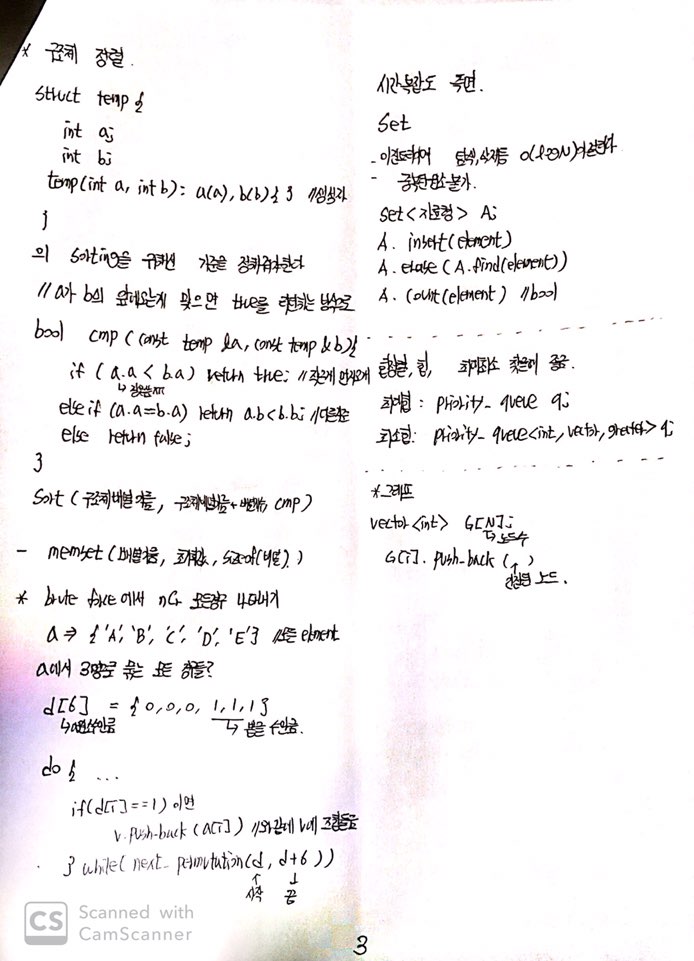 * 구조체 정렬.
struct temp {
int a;
int b;
temp(int a, int b): a(a), b(b) { } //생성자
}
의 sorting을 위해선 기준을 정해줘야한다
// a가 b의 앞에오는게 맞으면 true를 리턴하는 함수로
bool cmp (const temp &a, const temp &b){
if (a.a < b.a) return true; //작은게 먼저오게
else if (a.a=b.a) return a.b<b.b; //다음순
else return false;
}
Sort (구조체배열이름, 구조체배열이름+ cmp)
- memset (배열이름, 초기값, sizeof(배열))
* brute force에서 nCr 모든경우 나타내기
a ⇒ {'A', 'B', 'C', 'D', 'E'} //모든 element
a에서 3명으로 묶는 모든 경우들?
d[6] = {0,0,0, 1,1,1}
↳a원소수만큼 ↳ 뽑을 수만큼.
do { ...
if(d[i]==1) 이면
v.push-back (a[i])
} while( next_permutation(d, d+6 ))
↑ ↓
시작 끝
시간복잡도 측면.
Set
- 이진트리여서 탐색,삭제등 O(logN)
- 중복원소불가.
Set<자료형> A;
A. insert(element)
A. erase(A.find(element))
A. count(element) //bool
힙, 최대최소 찾을때 좋음.
최대힙: priority_queue q;
최소힙: priority_queue<int, vector, greater> q;
*그래프
vector<int> G[N];
↳노드수
G[i]. push-back ( )
↑
연결된 노드.
Scanned with
CamScanner
CS
3